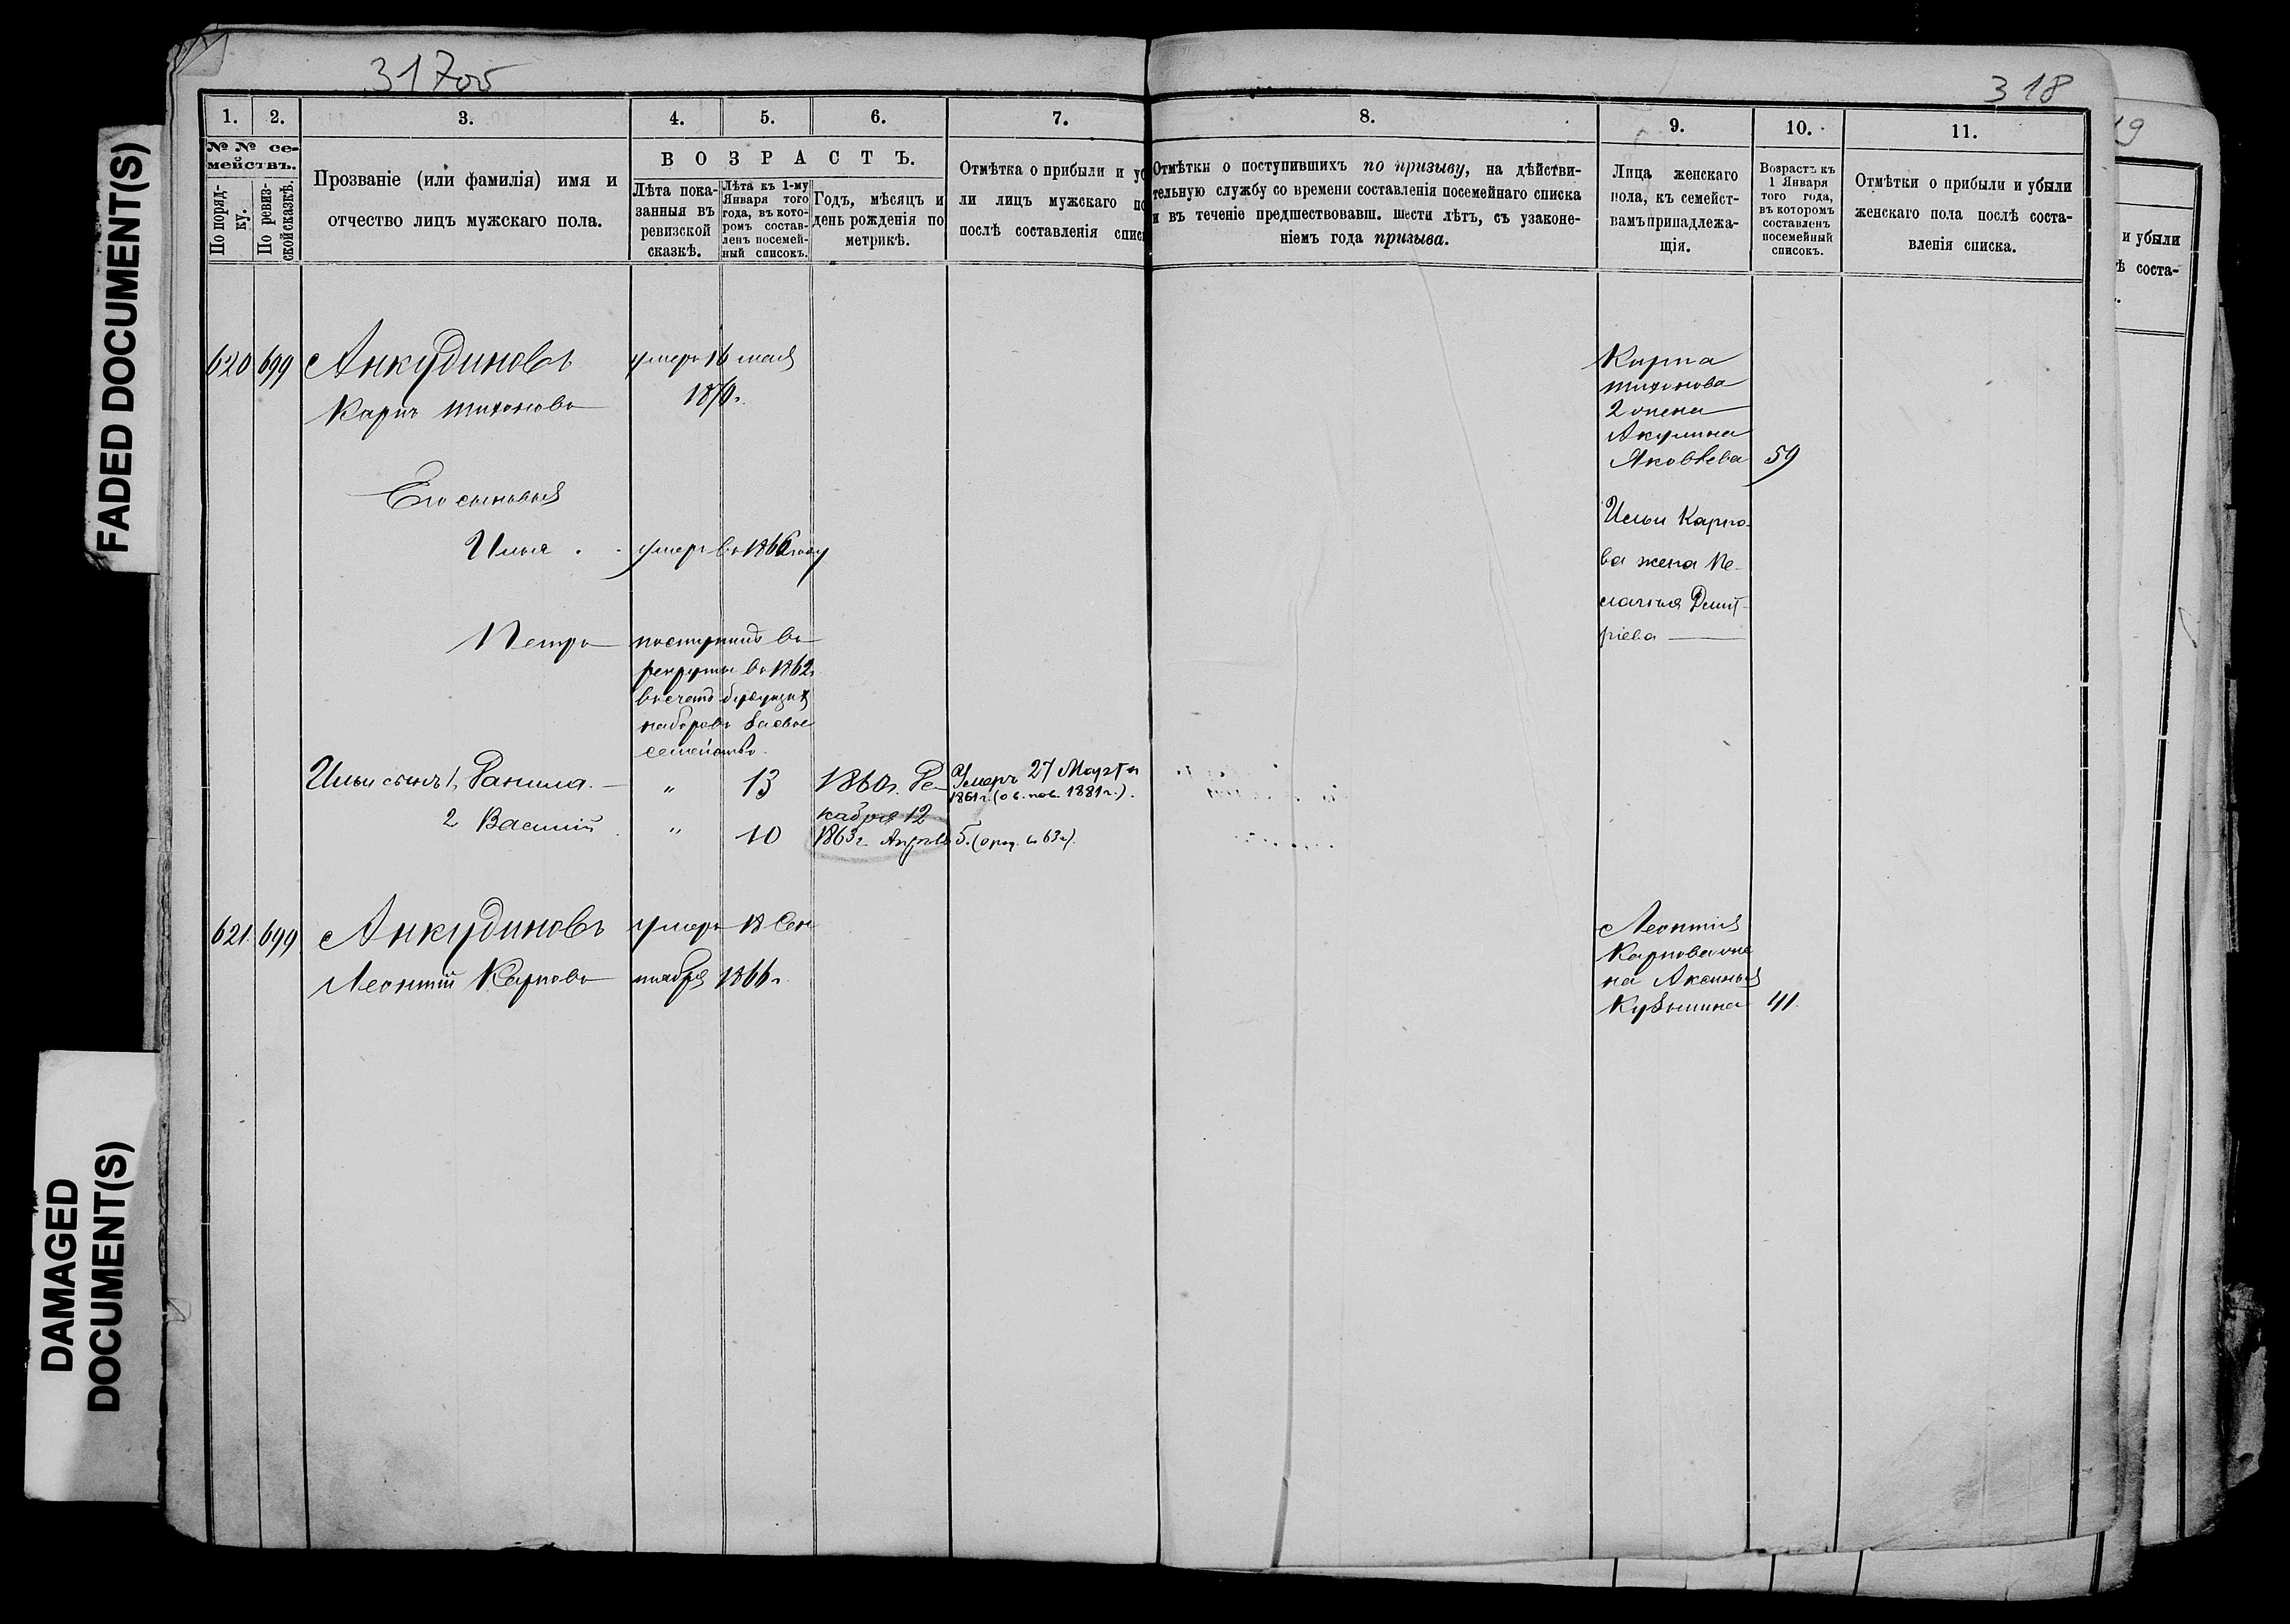 FADED DOCUMENT(S)
DAMAGED
DOCUMENT(S)
317об
318
19
1.
2.
3.
4.
5.
6.
7.
8.
9.
10.
11.
№ № се-
мействъ.
По поряд-
ку.
По ревиз-
ской сказкѣ.
Прозваніе (или фамилія) имя и
отчество лицъ мужскаго пола.
ВОЗРАСТЪ.
Лѣта пока-
занныя въ
ревизской
сказкѣ.
Лѣта къ 1-му
Января того
года, въ кото-
ромъ состав-
ленъ посемей-
ный списокъ.
Годъ, мѣсяцъ и
день рожденія по
метрикѣ.
Отмѣтка о прибыли и уб
ли лицъ мужскаго по
послѣ составленія спис
Отмѣтки о поступившихъ по призыву, на дѣйстви-
тельную службу со времени составленія посемейнаго списка
и въ теченіе предшествовавш. шести лѣтъ, съ узаконе-
ніемъ года призыва.
Лица женскаго
пола, къ семейст-
вамъ принадлежа-
щія.
Возрастъ къ
1 Января
того года,
въ которомъ
составленъ
посемейный
списокъ.
Отмѣтки о прибыли и убыли
женскаго пола послѣ соста-
вленія списка.
и убыли
ѣ соста-
620 699 Анкудиновъ
Карпъ Тихоновъ
умеръ 16 мая
1870г.
Карпа
Тихонова
2 жена
Акулина
Яковлева 59
Его сыновья
Илья умеръ въ 1866 году
Ильи Карпо-
ва жена Пе-
лагѣя Дмит-
ріева
Петръ поступилъ въ
рекруты въ 1862г
въ счетъ будущихъ
наборовъ за свое
семейство.
Ильи сынъ 1, Данила. " 13 1860г. Де-
кабря 12
Умеръ 27 Марта
1861г. (о в. пов. 1881г.).
2 Василій " 10 1863г. Апрѣля 5. (о род. въ 63г).
621. 699 Анкудиновъ
Леонтій Карповъ
умеръ 18 Сен
тября 1866г.
Леонтія
Карпова же
на Аксинья
Кузьмина 41.